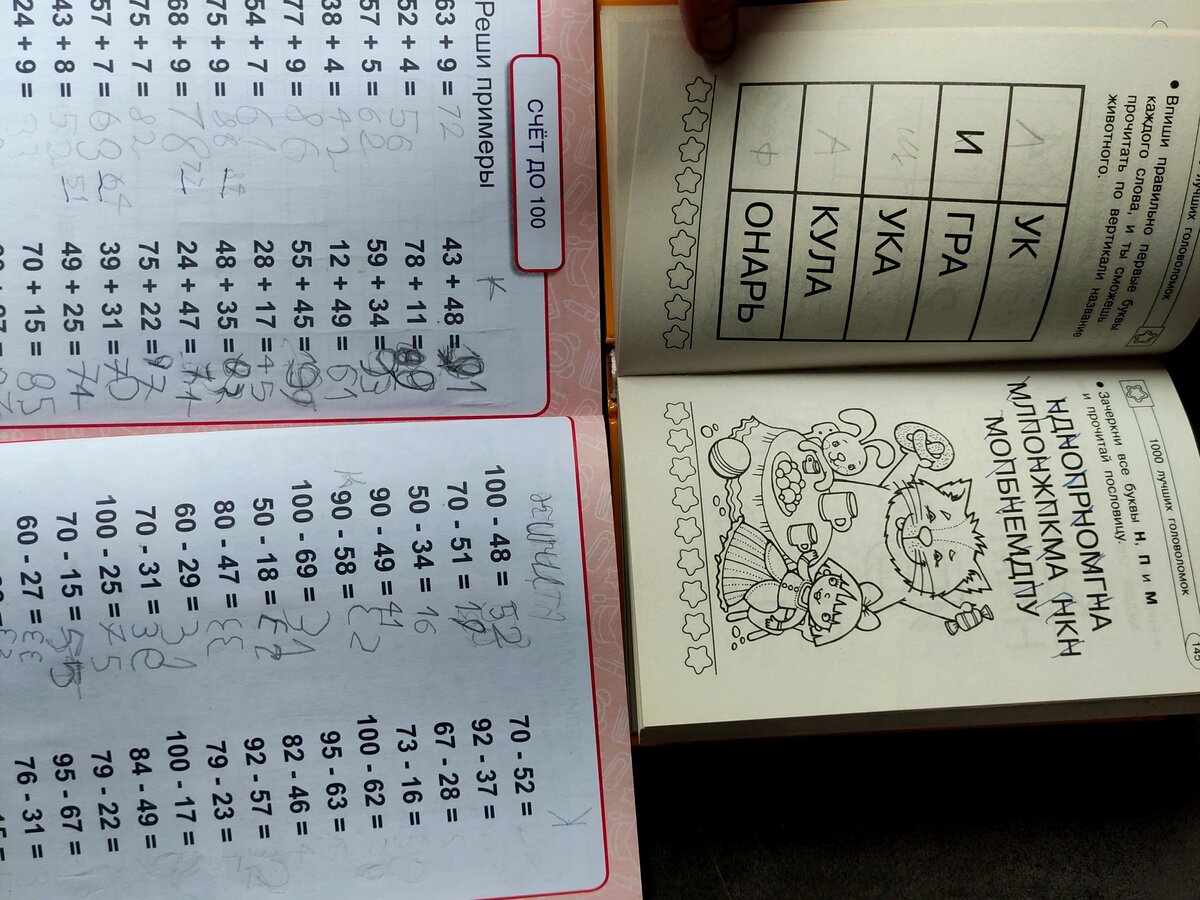 лучших головоломок
• Впиши правильно первые буквы
каждого слова, и ты сможешь
прочитать по вертикали название
животного.
Л УК
И ГРА
Щ УКА
А КУЛА
Ф ОНАРЬ
1000 лучших головоломок 145
• Зачеркни все буквы н, п и м
и прочитай пословицу.
НДНОПРНОМГНА
МЛПОНЖПКМА НКН
МОПБНЕМДПУ
СЧЁТ ДО 100
Реши примеры
63 + 9 = 72
52 + 4 = 56
57 + 5 = 62
38 + 4 = 42
77 + 9 = 86
54 + 7 = 61
75 + 9 =
68 + 9 = 78 77
75 + 7 = 82
57 + 7 = 63 64
43 + 8 = 52 51
24 + 9 =
К
43 + 48 = 91
78 + 11 = 89
59 + 34 = 93
12 + 49 = 61
55 + 45 =
28 + 17 = 45
48 + 35 = 83
24 + 47 = 71
75 + 22 = 97
39 + 31 = 70
49 + 25 = 74
70 + 15 = 85
100 - 48 = 52
70 - 51 =
50 - 34 = 16
90 - 49 = 41
К
90 - 58 = 32
100 - 69 = 31
50 - 18 =
80 - 47 = 33
60 - 29 = 31
70 - 31 =
100 - 25 = 75
70 - 15 = 55
60 - 27 = 33
К
70 - 52 =
92 - 37 =
67 - 28 =
73 - 16 =
100 - 62 =
95 - 63 =
82 - 46 =
92 - 57 =
79 - 23 =
100 - 17 =
84 - 49 =
79 - 22 =
95 - 67 =
76 - 31 =